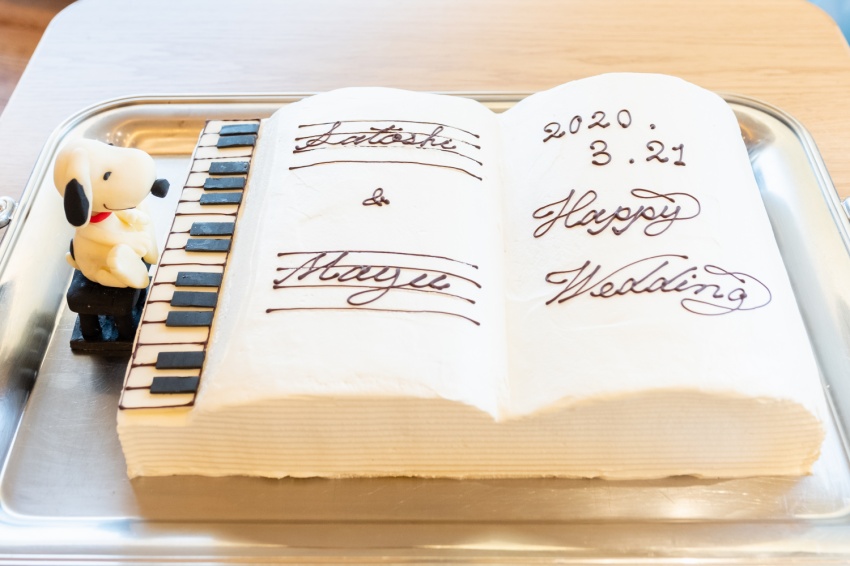 Satoshi
&
Mayu
2020.
3.21
Happy
Wedding